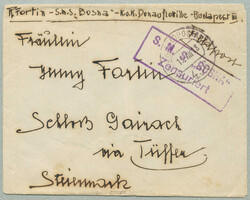 Fortin - S.M.S. "Bosna" - K.u.K. Donauflottille - Budapest III
Feldpost
Fräulein
S.M.S. "BOSNA"
Zensuriert
Jenny Fortin
Schloß Gairach
via Tüffer
Steiermark